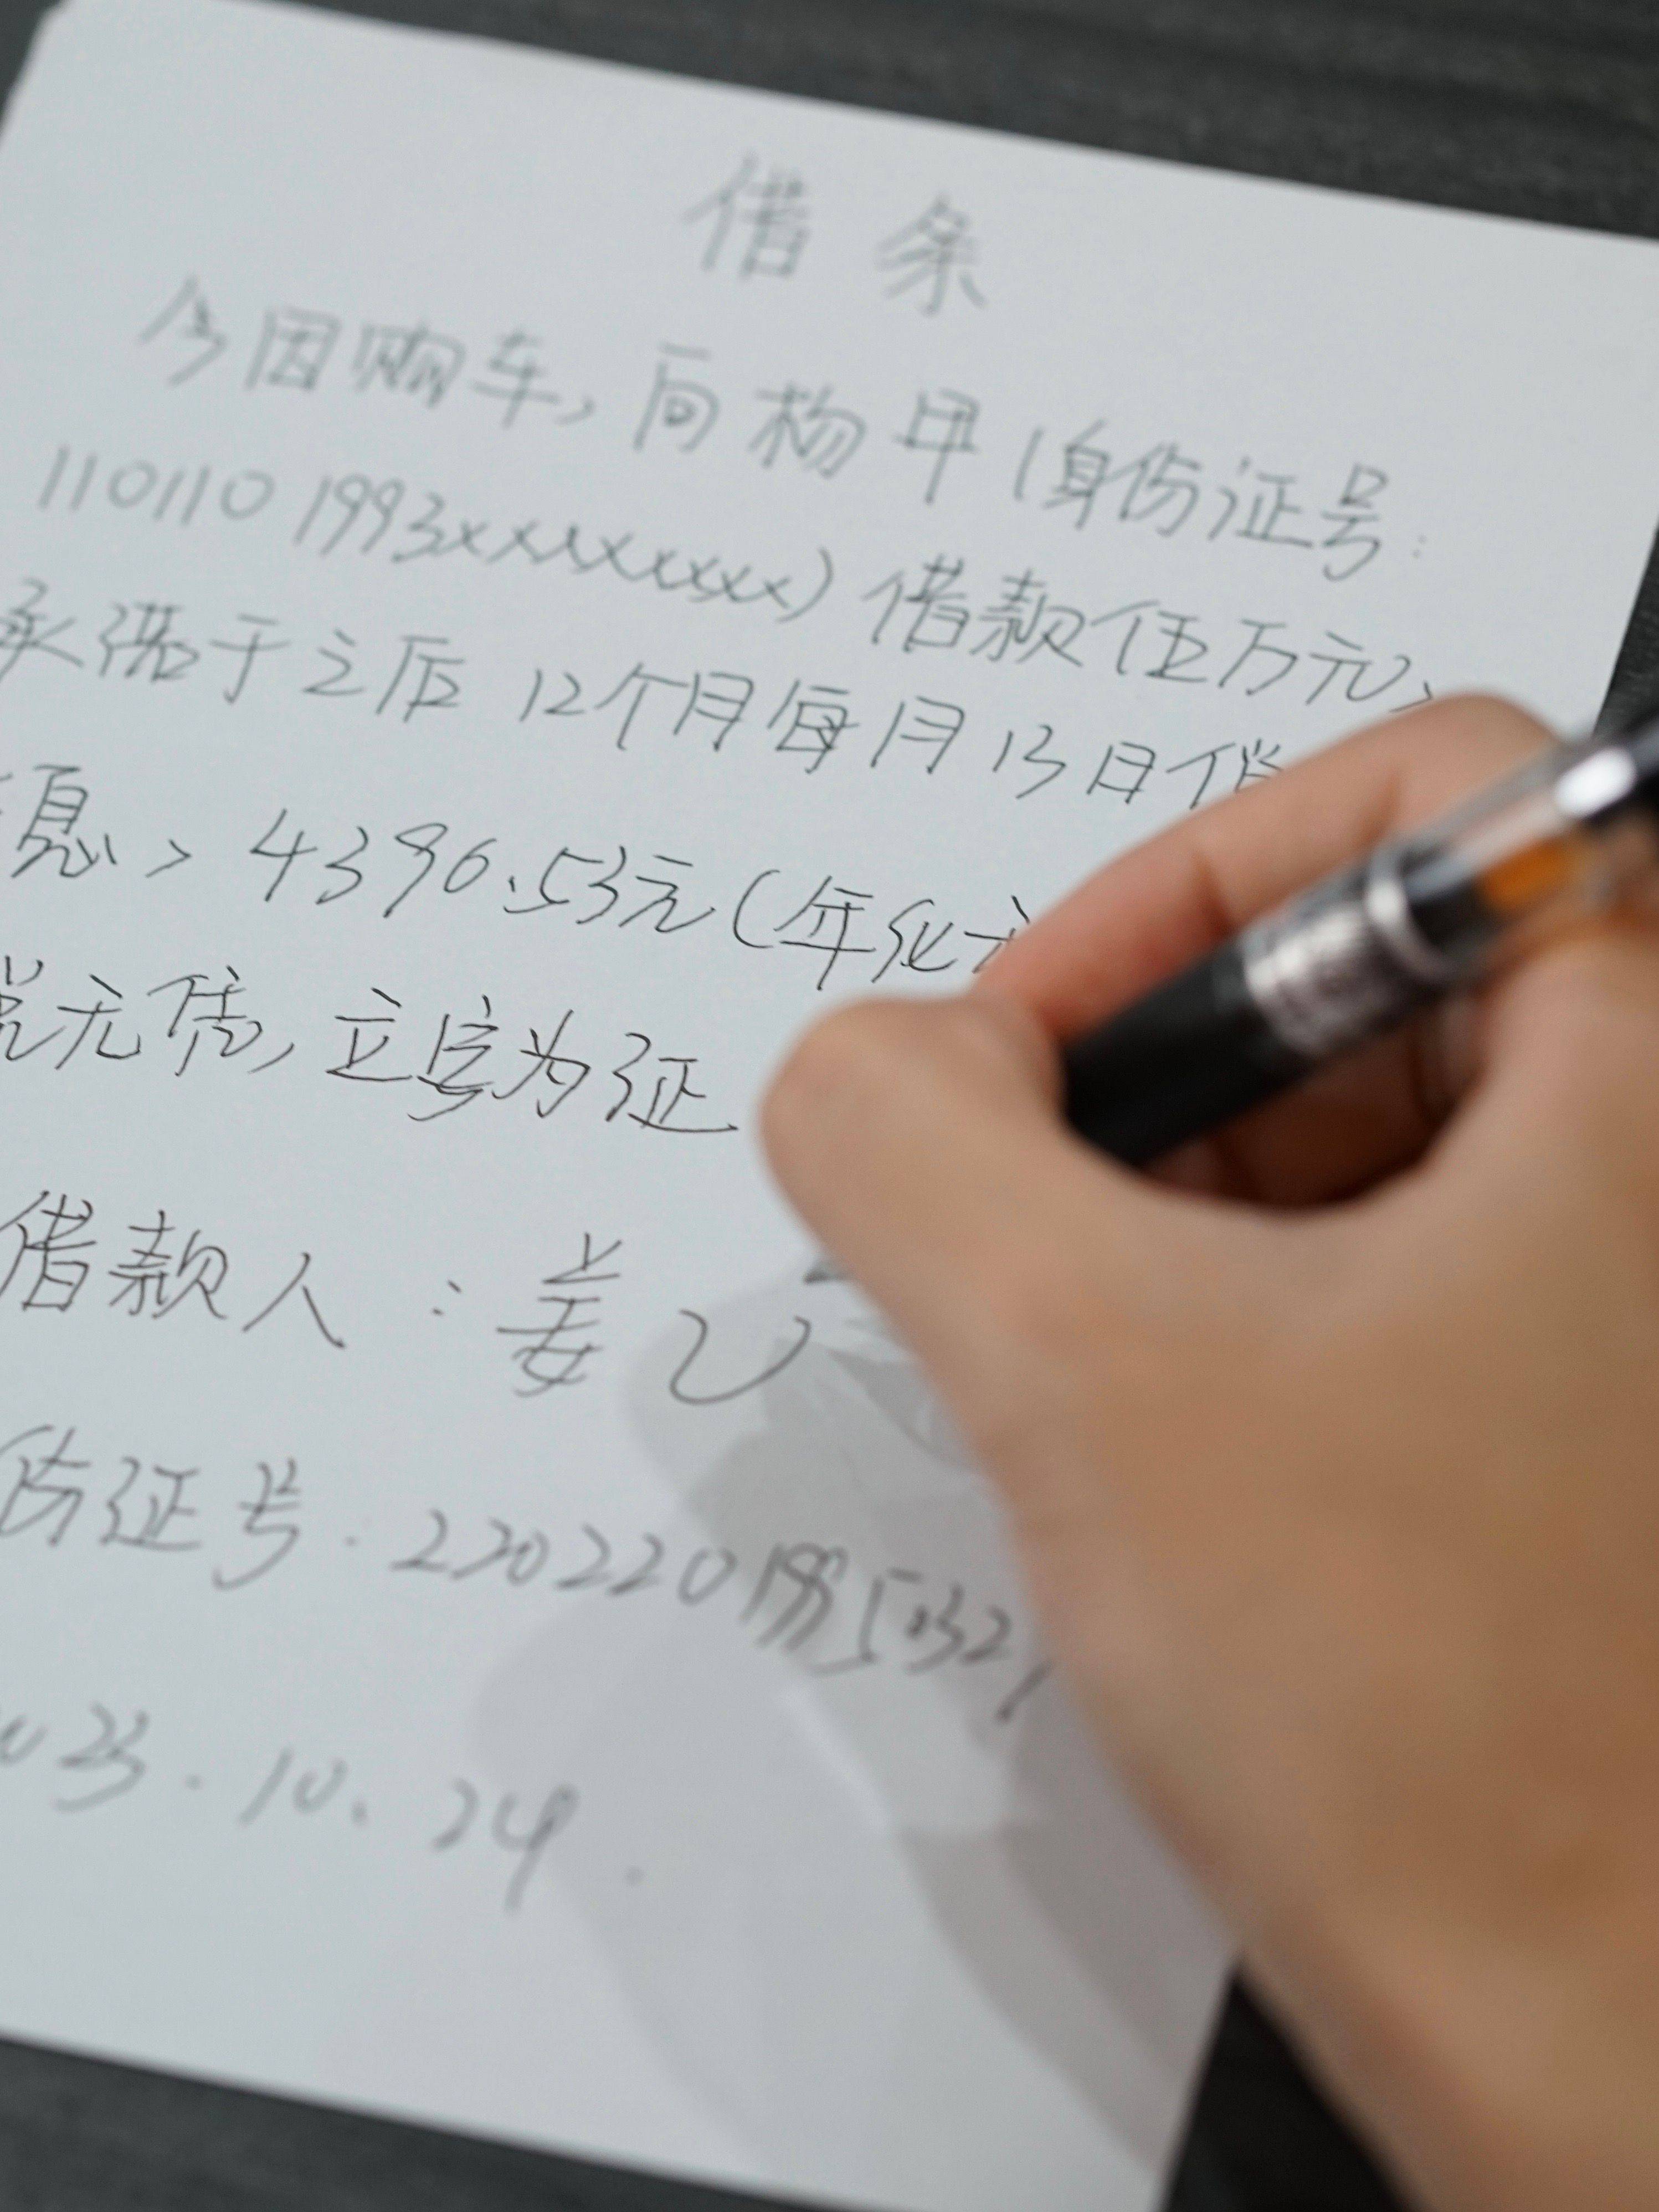 借条
今因购车，向杨甲（身份证号：
1101101993xxxxxxxx）借款伍万元，
承诺于之后12个月每月13日偿
息，4396.53元（年化
说无凭，立字为证
借款人：姜乙
份证号：2202201995
023.10.24.